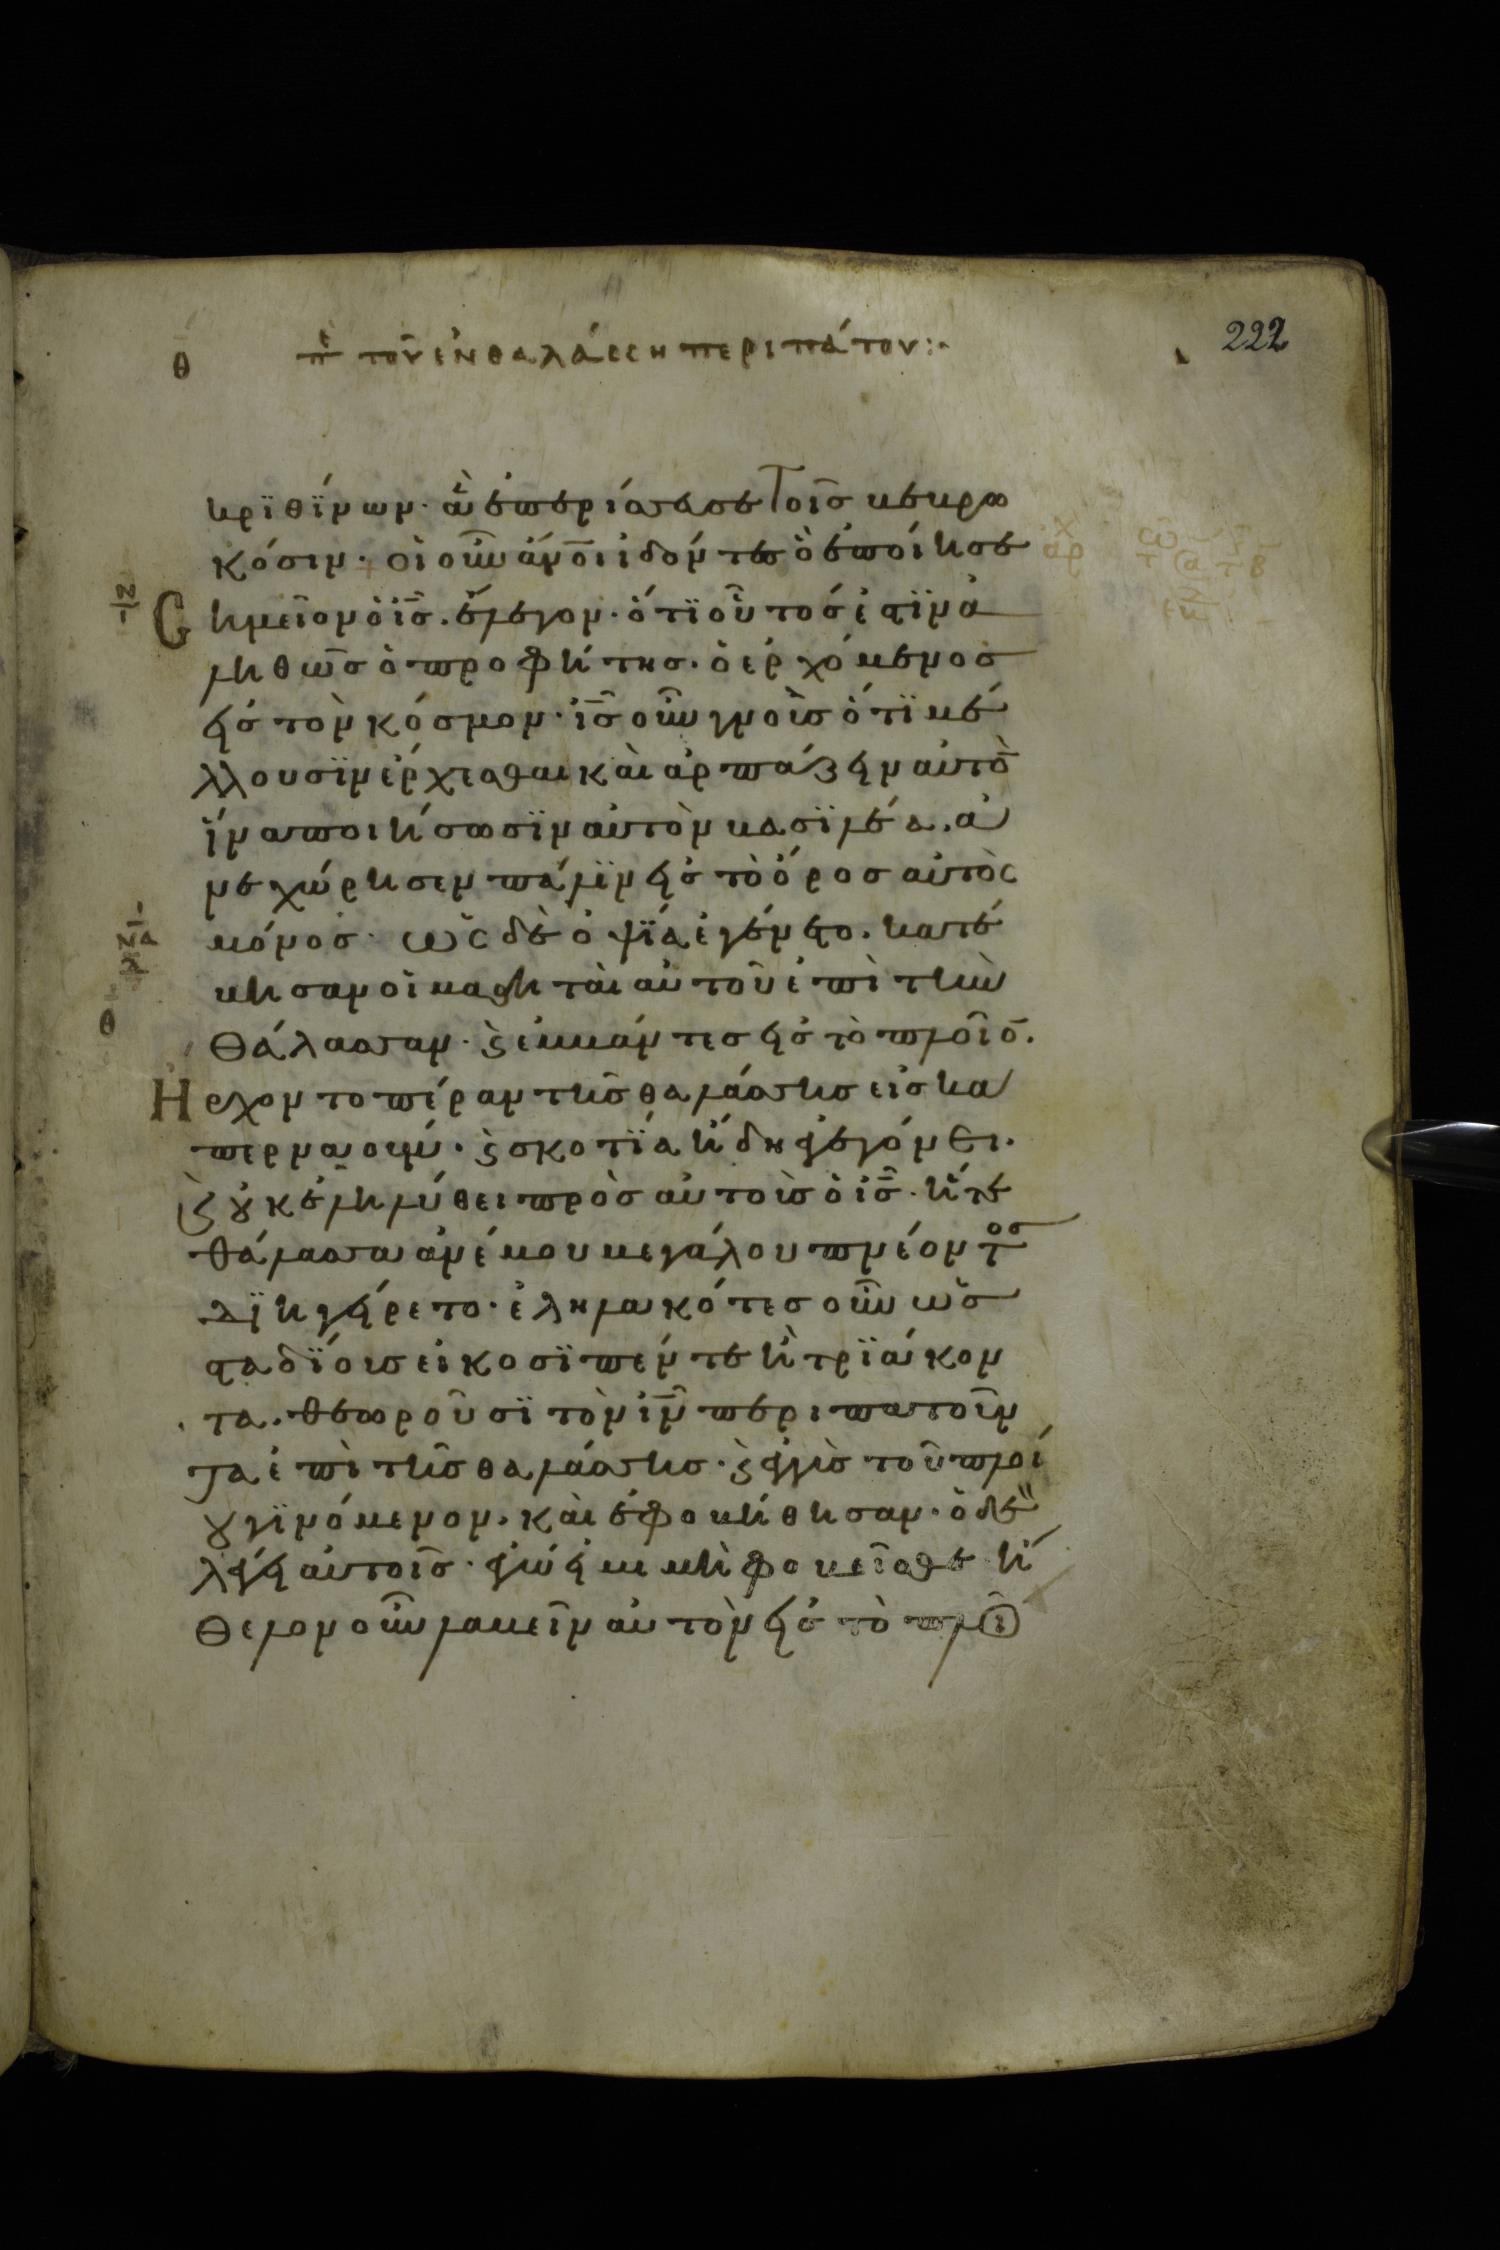 222
θ πε τοῦ ἐν θαλάσσῃ περιπάτου:
κριθίνων· ἃ ἐπερίσσευσε τοῖς βεβρω
κόσιν· οἱ οὖν ἄνοι ἰδόντες ὃ ἐποίησε
Ϲ ημεῖον ὁ ις̅. ἔλεγον· ὅτι οὗτός ἐστιν ἀ
ληθῶς ὁ προφήτης. ὁ ἐρχόμενος
εἰς τὸν κόσμον· ις̅ οὖν γνοὺς ὅτι μέ
λλουσιν ἔρχεσθαι καὶ ἁρπάζειν αὐτὸ̅
ἵνα ποιήσωσιν αὐτὸν βασιλέα. ἀ
νεχώρησεν πάλιν εἰς τὸ ὄρος αὐτὸς
μόνος· ὡς δὲ ὀψία ἐγένετο. κατέ
βησαν οἱ μαθηταὶ αὐτοῦ ἐπὶ τὴν
θάλασσαν· ϗ ἐμβάντες εἰς τὸ πλοῖο̅.
Ἤ ρχοντο πέραν τῆς θαλάσσης εἰς κα
περναούμ· ϗ σκοτία ἤδη ἐγεγόνει.
ϗ οὐκ ἐληλύθει πρὸς αὐτοὺς ὁ ις̅. ἥ τε
θάλασσα ἀνέμου μεγάλου πνέοντος
διηγείρετο· ἐληλακότες οὖν ὡς
σταδίους εἴκοσι πέντε ἢ τριάκον
τα. θεωροῦσι τὸν ιν̅ περιπατοῦν
τα ἐπὶ τῆς θαλάσσης· ϗ ἐγγὺς τοῦ πλοί
ου γινόμενον. καὶ ἐφοβήθησαν· ὁ δὲ
λέγει αὐτοῖς· ἐγώ εἰμι μὴ φοβεῖσθε· ἤ
θελον οὖν λαβεῖν αὐτὸν εἰς τὸ πλοῖ